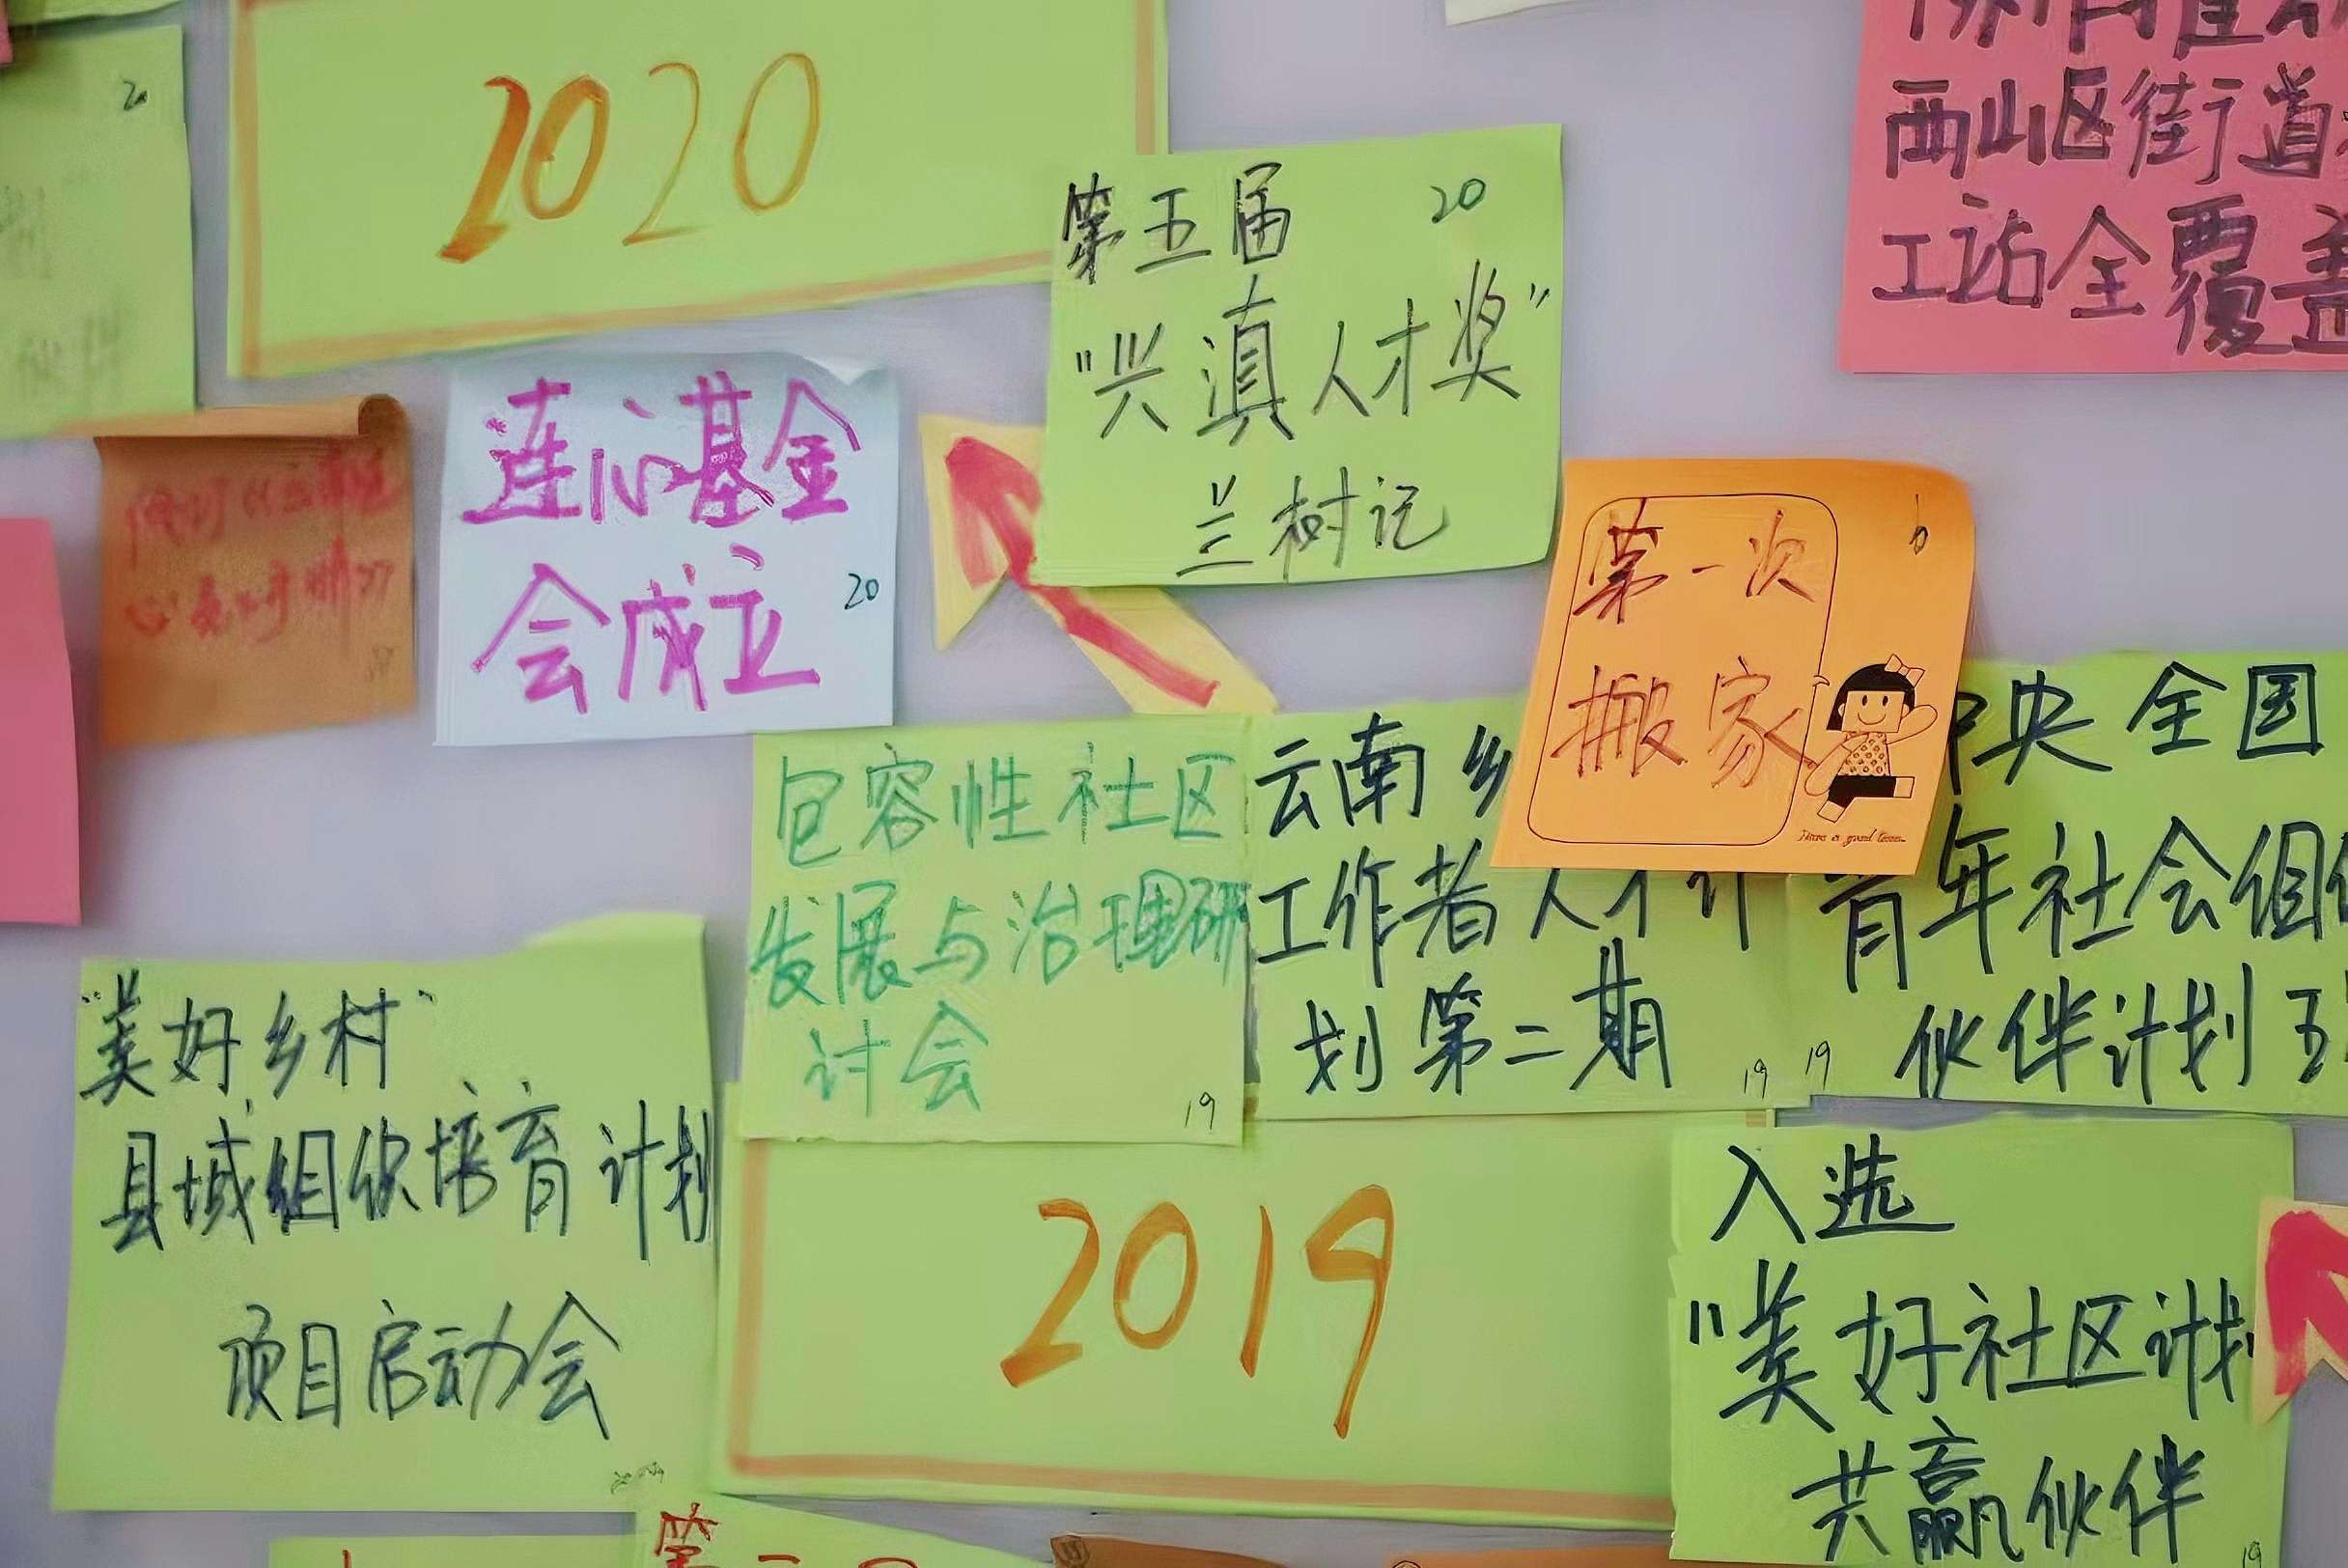 2020
20
西山区街道
工站全覆盖
第五届
20
"兴滇人才奖"
兰树记
连心基金
会成立
20
第一次
搬家
6
Have a good time
包容性社区
发展与治理研
讨会
19
云南乡
工作者人才计
划第二期
19
中央全国
青年社会组织
伙伴计划五
19
"美好乡村"
县域组织培育计划
项目启动会
2019
入选
"美好社区计划
共赢伙伴
19
第二